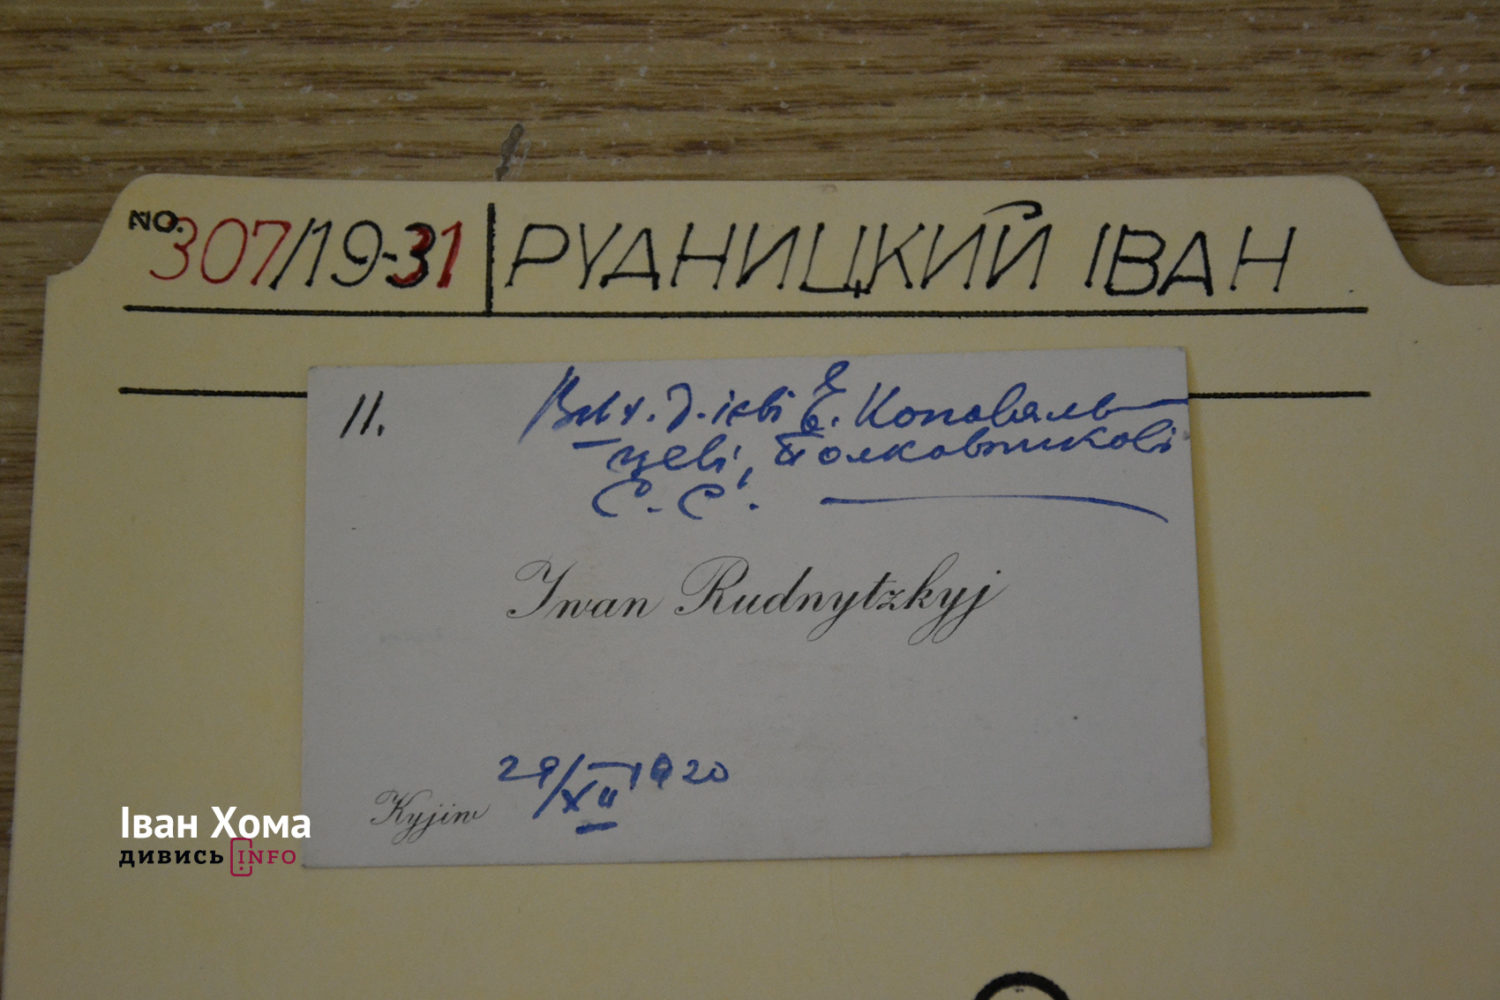 NO. 307/19-31 РУДНИЦКИЙ ІВАН
11.
Вих. д-ієві Є. Коноваль-
цеві, Полковникові
С. С.
Iwan Rudnytzkyj
29/XII 1920
Kyjiw
Іван Хома
дивись INFO